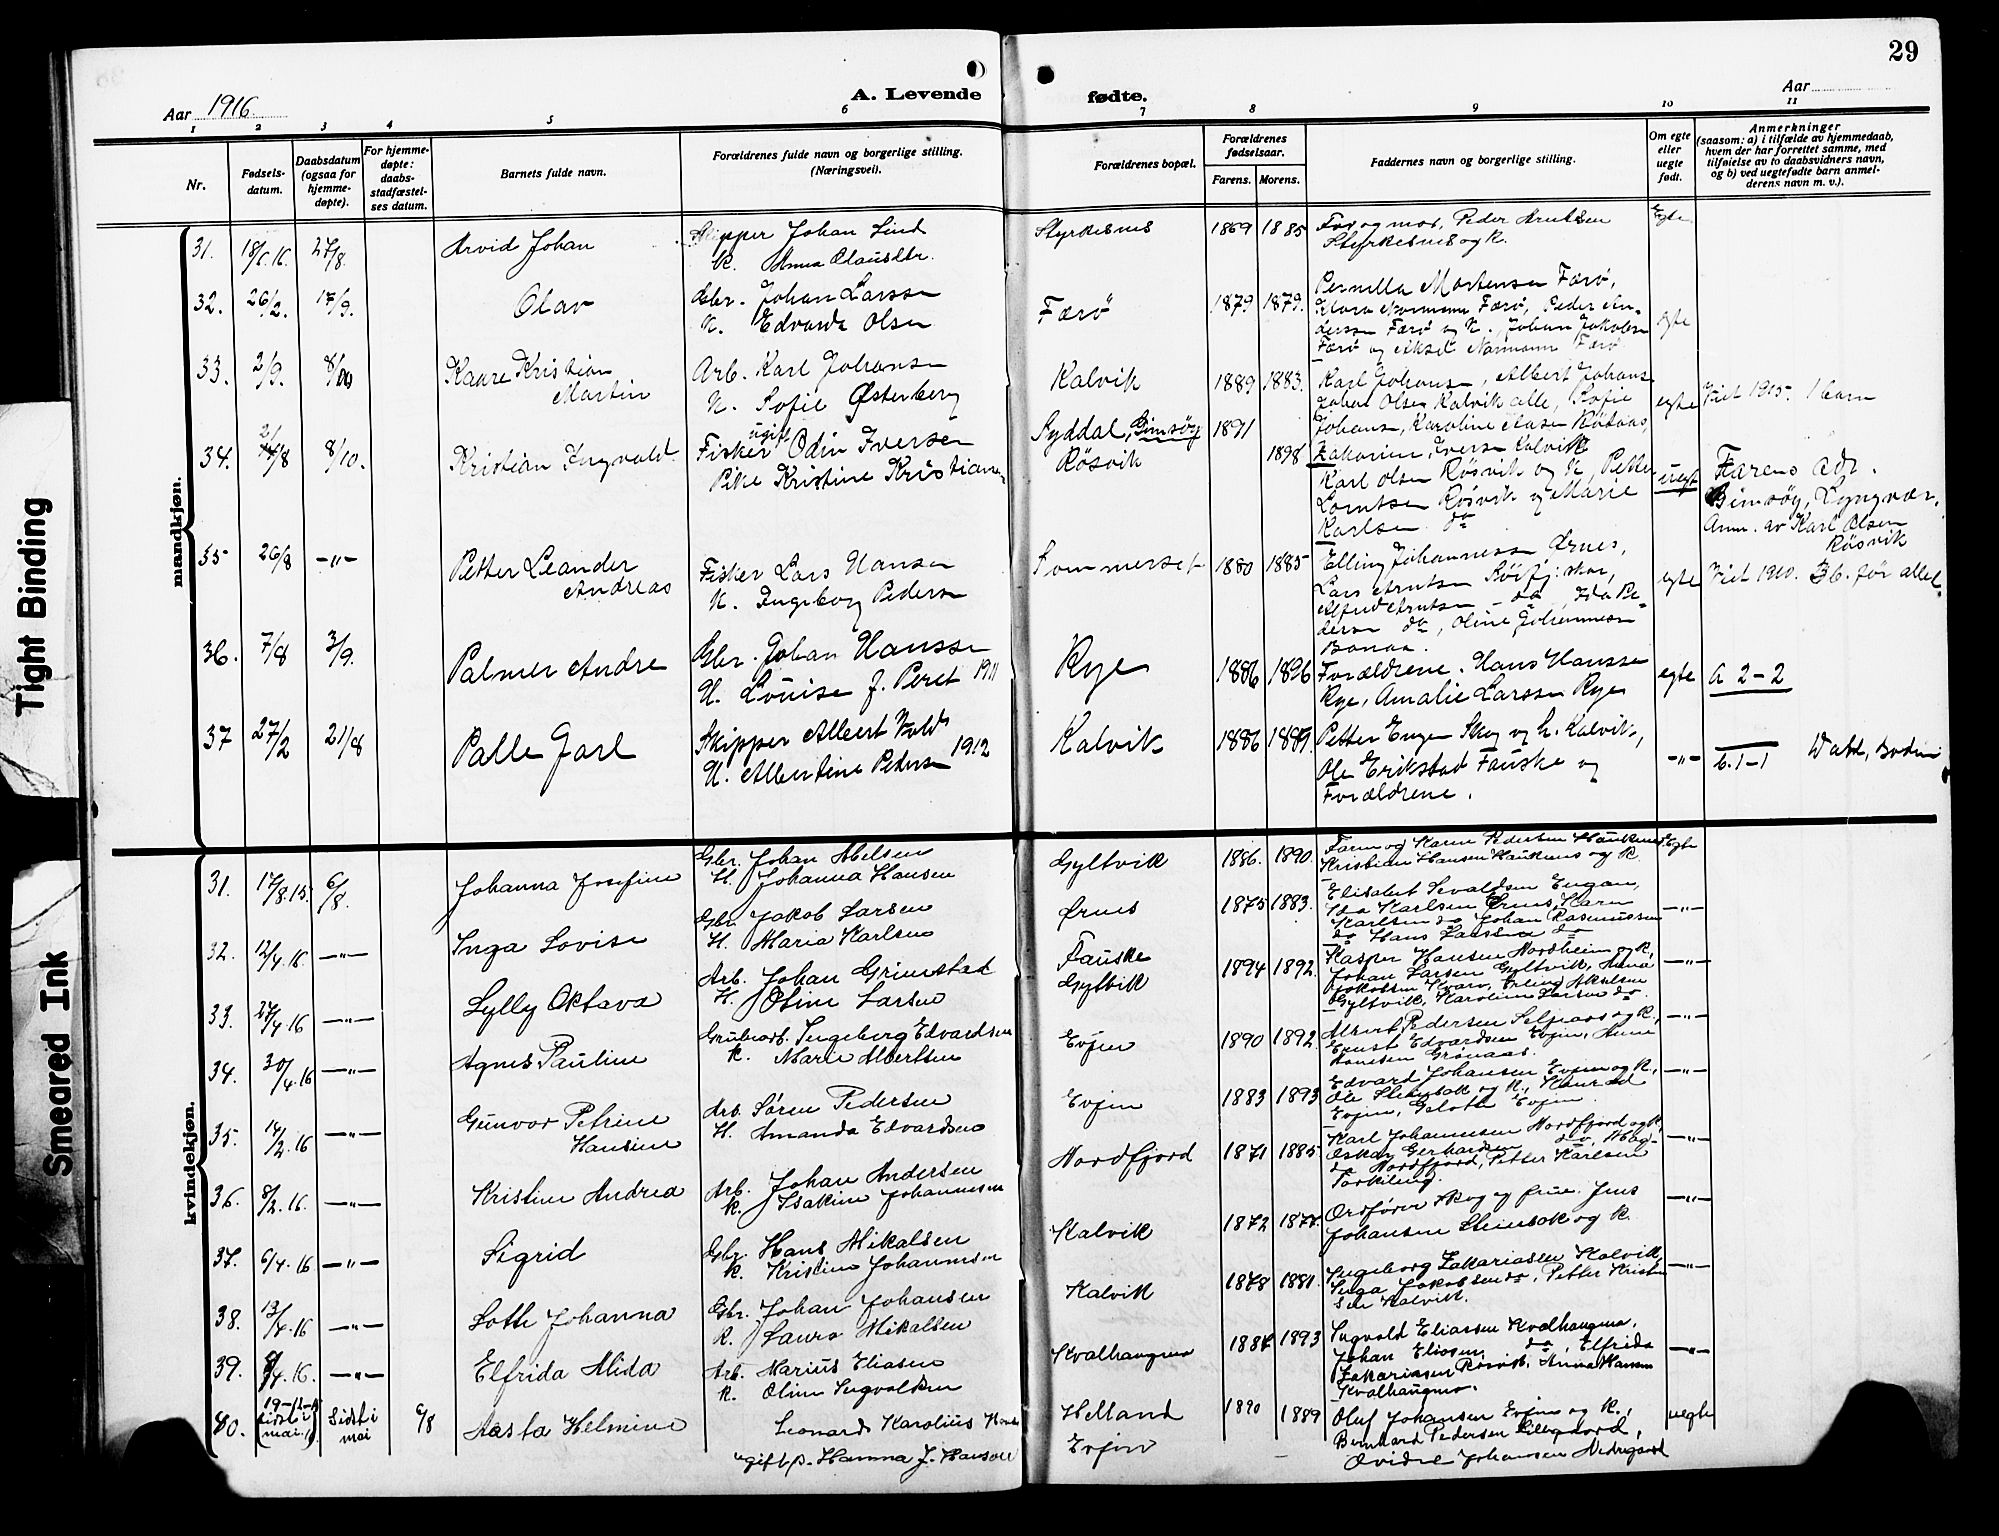 29
Aar 1916.
A. Levende fødte.
Aar
1 2 3 4 5 6 7 8 9 10 11
Nr.
Fødsels-
datum.
Daabsdatum
(ogsaa for
hjemme-
døpte).
For hjemme-
døpte:
daabs-
stadfæstel-
ses datum.
Barnets fulde navn.
Forældrenes fulde navn og borgerlige stilling.
(Næringsvei).
Forældrenes bopæl.
Forældrenes
fødselsaar.
Farens. Morens.
Faddernes navn og borgerlige stilling.
Om egte
eller
uegte
født.
Anmerkninger
(saasom: a) i tilfælde av hjemmedaab,
hvem der har forrettet samme, med
tilføielse av to daabsvidners navn,
og b) ved uegtefødte barn anmel-
derens navn m. v.).
mandkjøn.
31. 18/6.16. 27/8. Arvid Johan
Skipper Johan Lind
K. Anna Olausdtr.
Styrkesnes 1869 1885
Far og mor, Peder Arntsen
Styrkesnes og k.
Egte
32. 26/2. 17/9. Olav
Gbr. Johan Larsen
H. Edvarda Olsen
Færö 1879 1879.
Pernilla Mortensen Færö,
Klara Normann Færö, Peder An-
dersen Færö og H. Johan Jakobsen
Færö og Aksel Normann Færö
egte
33. 2/9. 8/10 Kaare Kristian
Martin
Arb. Karl Johansen
H. Sofie Østerberg
Kalvik 1889 1883.
Karl Johansen, Albert Johans
Johan Olsen Kalvik alle, Sofie
Johansen, Karoline Aasen Røsaas,
Zakarias Iversen Kalvik
egte Viet 1915. 1 barn
34. 2/8 8/10. Kristian Ingvald
Fisker ugift Odin Iversen
Pike Kristine Kristiansen
Syddal, Gimsöy 1891
Røsvik 1898
Karl Olsen Røsvik og H, Petter
Lorntsen Røsvik og Marie
Karlsen do
uegte
Farens adr.
Gimsöy, Lyngvær.
Anm. av Karl Olsen
Røsvik
35 26/8 -"- Petter Leander
Andreas
Fisker Lars Hansen
H. Ingeborg Pedersen
Sommerset 1880 1885
Elling Johannessen Ørnes,
Lars Arntsen Sörfj.skar,
Alfred Arntsen - do, Ida Pe-
dersen do, Oline Johannessen
Bonaa.
egte Viet 1910. 3 b. før allel.
36. 7/8 3/9. Palmer Andre
Gbr. Johan Hanssen
H. Louise f. Peret 1911
Rye 1886 1896
Forældrene. Hans Hanssen
Rye, Amalie Larssen Rye
egte a 2-2
37 27/2 21/8 Palle Jarl
Skipper Albert Vold
H. Albertine Pedersen 1912
Kalvik 1886 1889.
Petter Engen Skog og h. Kalvik,
Ole Erikstad Fauske og
Forældrene.
-"- b. 1-1
kvindekjøn.
31. 17/8.15. 6/8. Johanna Josefine
Gbr. Johan Nielsen
H. Johanna Hansen
Gyltvik 1886. 1890.
Faren og Karen Pedersen Haukenes
Kristian Hansen Haukenes og K.
Egte
32. 12/4.16. -"- Inga Lovise
Gbr Jakob Larsen
H. Maria Karlsen
Ørnes 1875 1883.
Elisabet Sevaldsen Engan,
Ida Karlsen Ørnes, Karen
Karlsen do Johan Rasmussen
do Hans Larssen do
-"-
33. 27/4.16 -"- Lylly Oktava
Arb. Johan Grimstad
H. Oline Larsen
Fauske
Gyltvik 1894 1892
Kasper Hansen Nordheim og K,
Johan Larsen Gyltvik, Anna
Jakobsen Kvarv, Erling Akselsen
Gyltvik, Karoline Larsen do
-"-
34. 30/4.16 -"- Agnes Pauline
Grubearb. Ingeberg Edvardsen
K. Marie Albertsen
Evjen 1890 1892
Albert Pedersen Selfaas og K.,
Ernst Edvardsen Evjen, Anna
Hansen Grønaas.
-"-
35. 14/2.16 -"- Gunvor Petrine
Hansine
Arb. Søren Pedersen
H. Amanda Edvardsen
Evjen 1883 1893
Edvard Johansen Evjen og K.,
Ole Steinbak og K., Konrad
Evjen, Gelotte Evjen
-"-
36. 8/2.16. -"- Kristine Andrea
Arb. Johan Andersen
K. Isakine Johannesen
Nordfjord 1871 1885
Karl Johannesen Nordfjord og K,
Oskar Gerhardsen do, Hag-
do Nordfjord, Petter Karlsen
Torkilseng.
-"-
37. 6/4.16 -"- Sigrid
Gbr. Hans Mikalsen
K. Kristine Johannesen
Kalvik 1872 1877
Ordfører Skog og frue. Jens
Johansen Steinbak og K.
-"-
38. 13/4.16 -"- Lotte Johanna
Gbr. Johan Johansen
K. Laura Mikalsen
Kalvik 1878 1881.
Ingeborg Zakariassen Kalvik,
Inga Jakobsen do, Petter Kristen
sen Kalvik.
-"-
39. 8/4.16. -"- Elfrida Alida
Arb. Marius Eliasen
K. Oline Ingvaldsen
Kvalhaugmo 1884 1893
Ingvald Eliassen Kvalhaugmo,
Johan Eliasen do, Elfrida
Zakariasen Røsvik, Anna Hansen
Kvalhaugmo.
-"-
40. 19-12-15 (sidst i mai.) Sidst i mai 6/8 Aasta Helmine
Leonard Karolius
ugift p. Hanna J. Hansen
Helland 1890 1889
Evjen
Oluf Johansen Evjen og K.,
Bernhard Pedersen Lillegaard,
Ovidie Johansen Nedregaard
uegte
Tight Binding
Smeared Ink